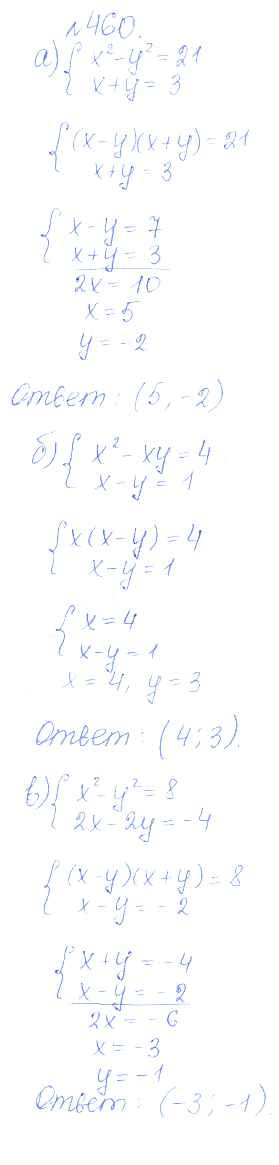 №460.
а) { x² - y² = 21
x + y = 3
{ (x - y)(x + y) = 21
x + y = 3
{ x - y = 7
x + y = 3
2x = 10
x = 5
y = -2
Ответ: (5, -2)
б) { x² - xy = 4
x - y = 1
{ x(x - y) = 4
x - y = 1
{ x = 4
x - y = 1
x = 4, y = 3
Ответ: (4; 3).
в) { x² - y² = 8
2x - 2y = -4
{ (x - y)(x + y) = 8
x - y = -2
{ x + y = -4
x - y = -2
2x = -6
x = -3
y = -1
Ответ: (-3; -1).